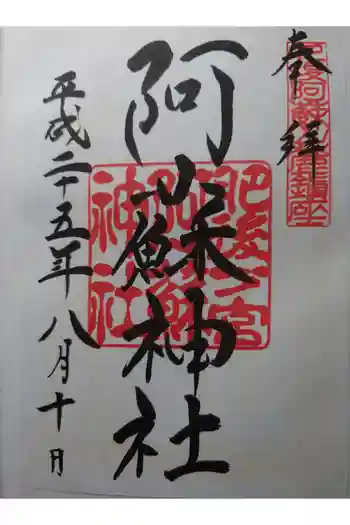 奉拝
阿蘇神社
肥後一宮
阿蘇
神社
平成二十五年八月十日